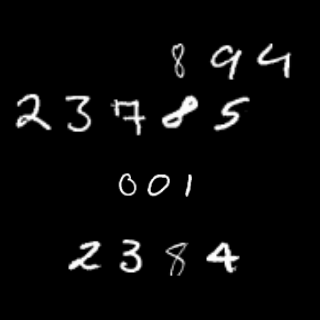 894
23785
001
2384